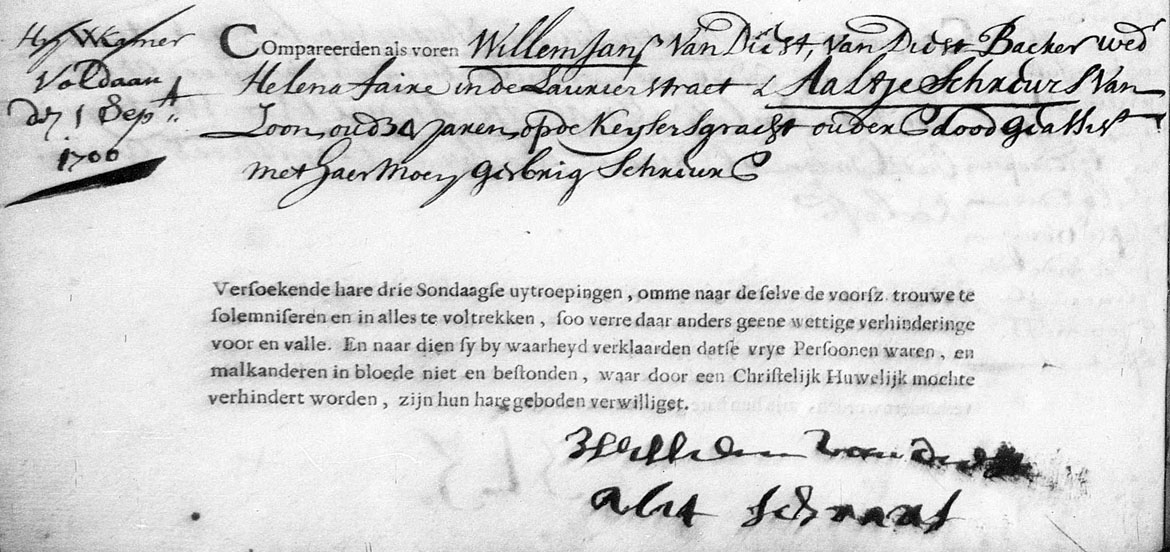 Hy WKamer
Voldaan
den 1 Sept
1700
Compareerden als voren Willem Jans Van Diest, Van Diest Backer wedr
Helena faire inde Laurier straet & Aaltje Schreurs Van
Loon, oud 34 Jaren, op de Keysersgracht ouders doodt geassist
met haer Moey Gerbrig Schreurs
Versoekende hare drie Sondaagse uytroepingen, omme naar deselve de voorsz. trouwe te
solemniseren en in alles te voltrekken, soo verre daar anders geene wettige verhinderinge
voor en valle. En naar dien sy by waarheyd verklaarden datse vrye Persoonen waren, en
malkanderen in bloede niet en bestonden, waar door een Christelijk Huwelijk mochte
verhindert worden, zijn hun hare geboden verwilliget.
Willem van
alet schreurs